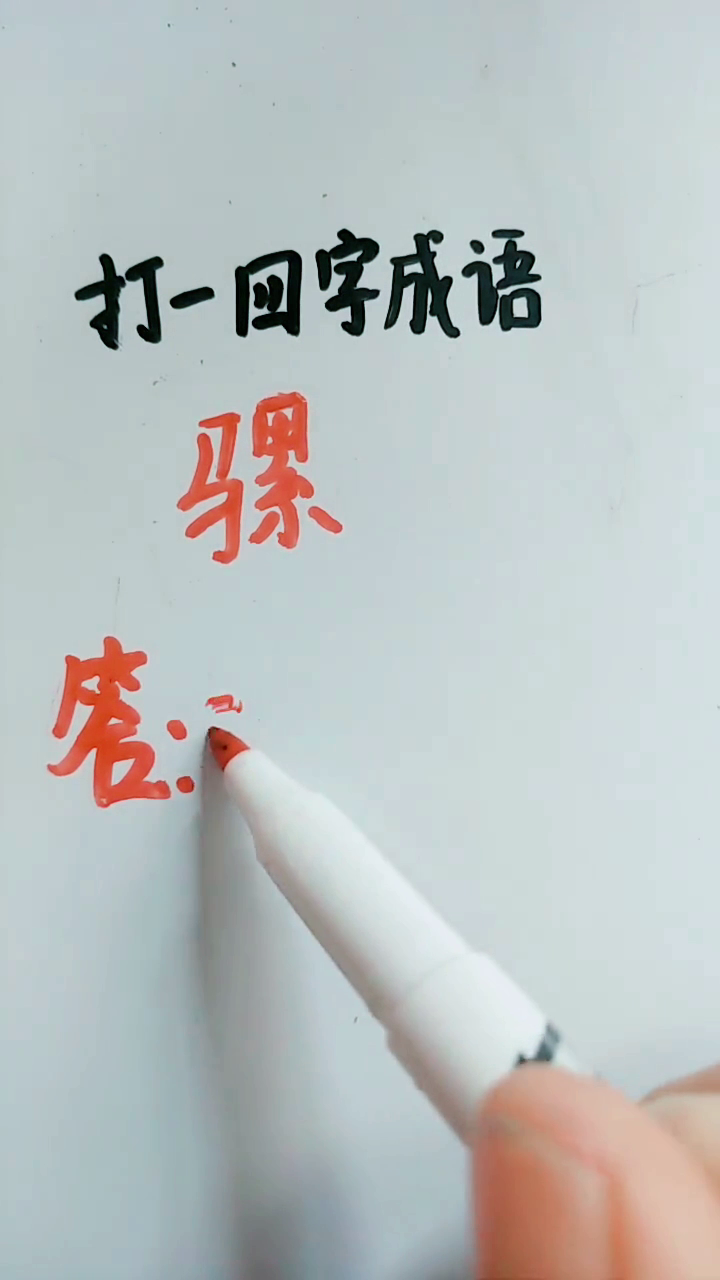 打一四字成语
骡
答: